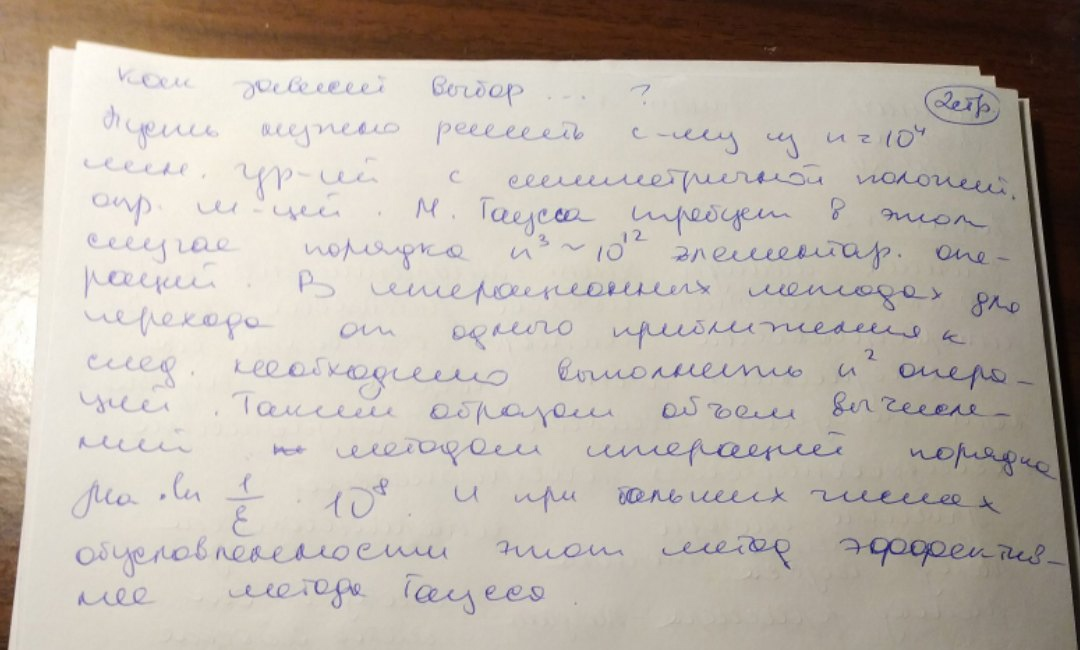 как зависит выбор ... ?
2стр
Пусть нужно решить с-му из n = 10⁴
лин. ур-ий с симметричной положит.
опр. м-цей. М. Гаусса требует в этом
случае порядка n³ ~ 10¹² элементар. опе-
раций. В итерационных методах для
перехода от одного приближения к
след. необходимо выполнить n² опера-
ций. Таким образом объем вычисле-
ний методом итераций порядка
μa · ln 1/ε · 10⁸. И при больших числах
обусловленности этот метод эффектив-
нее метода Гаусса.